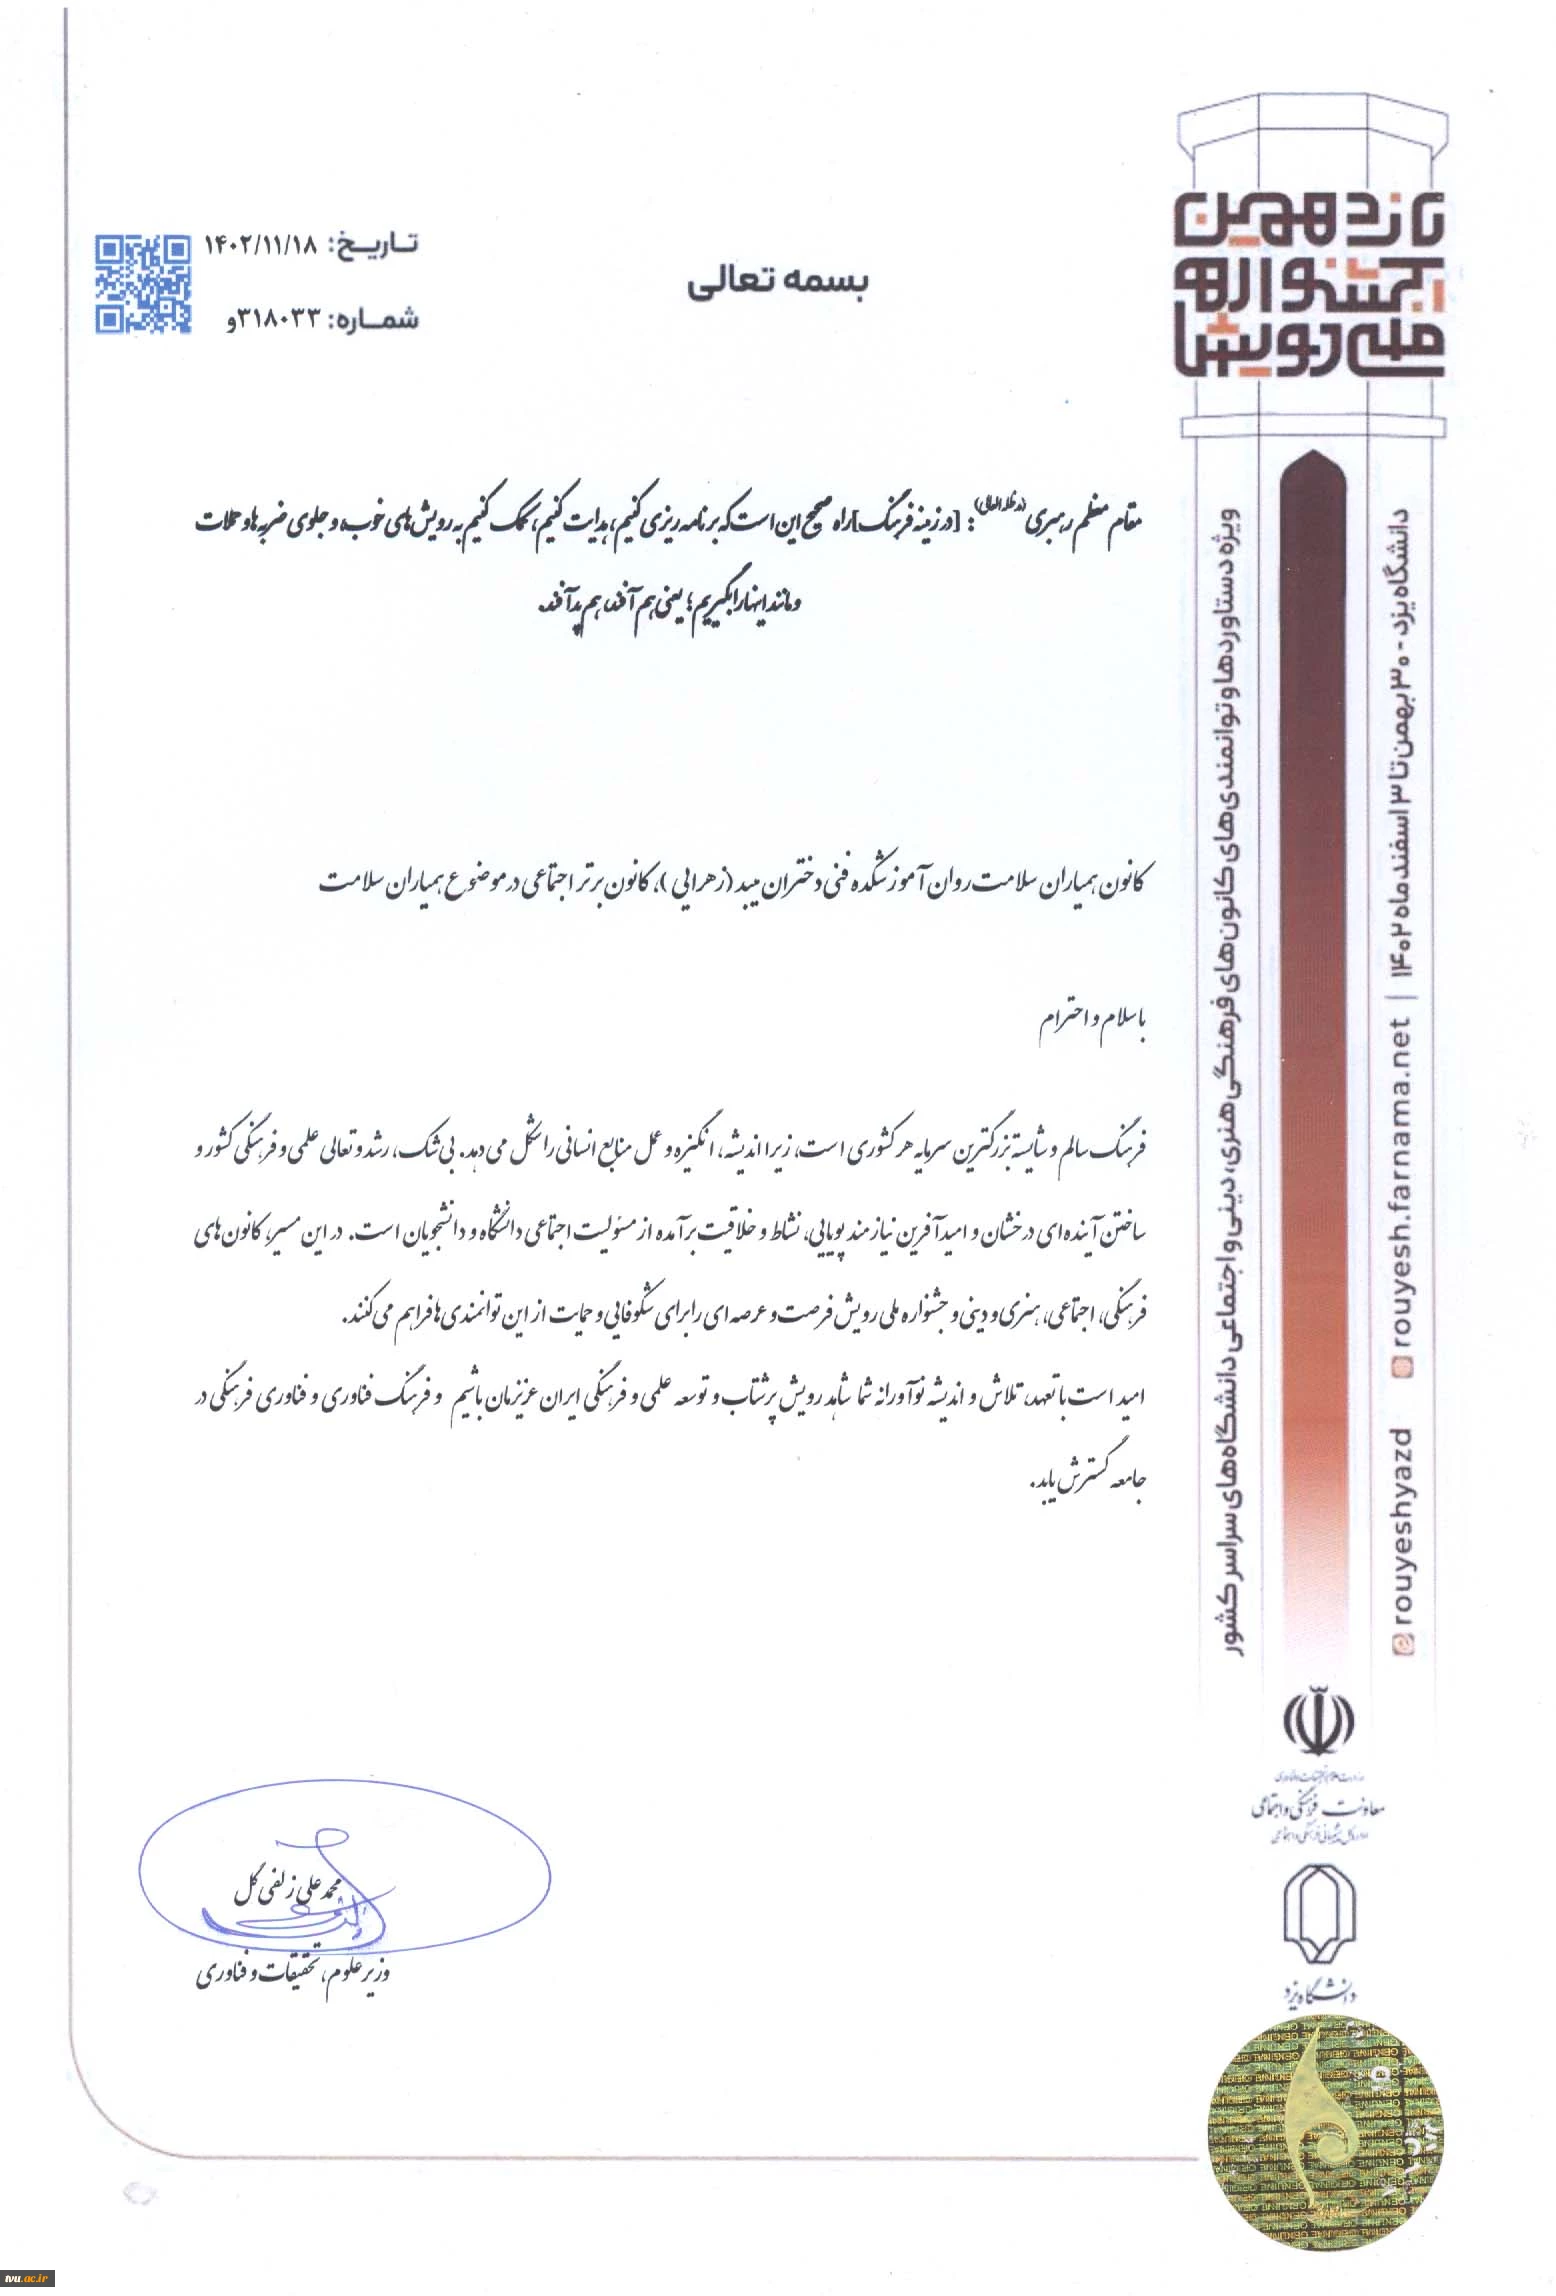 یازدهمین
جشنواره
ملی رویش
بسمه تعالی
تاریخ: ۱۴۰۲/۱۱/۱۸
شماره: ۳۱۸۰۳۳و
مقام معظم رهبری (مدظله العالی): [در زمینه فرهنگ] راه صحیح این است که برنامه ریزی کنیم، هدایت کنیم، کمک کنیم به رویش‌های خوب، و جلوی ضربه‌ها و حملات
و مانند اینها را بگیریم؛ یعنی هم آفند، هم پدآفند.
کانون همیاران سلامت روان آموزشکده فنی دختران میبد (زهرایی)، کانون برتر اجتماعی در موضوع همیاران سلامت
با سلام و احترام
فرهنگ سالم و شایسته بزرگترین سرمایه هر کشوری است، زیرا اندیشه، انگیزه و عمل منابع انسانی را شکل می دهد. بی شک، رشد و تعالی علمی و فرهنگی کشور و
ساختن آینده ای درخشان و امیدآفرین نیازمند پویایی، نشاط و خلاقیت برآمده از مسئولیت اجتماعی دانشگاه و دانشجویان است. در این مسیر، کانون های
فرهنگی، اجتماعی، هنری و دینی و جشنواره ملی رویش فرصت و عرصه ای را برای شکوفایی و حمایت از این توانمندی ها فراهم می کنند.
امید است با تعهد، تلاش و اندیشه نوآورانه شما شاهد رویش پرشتاب و توسعه علمی و فرهنگی ایران عزیزمان باشیم و فرهنگ فناوری و فناوری فرهنگی در
جامعه گسترش یابد.
محمدعلی زلفی گل
وزیر علوم، تحقیقات و فناوری
ویژه دستاوردها و توانمندی‌های کانون‌های فرهنگی هنری، دینی و اجتماعی دانشگاه‌های سراسر کشور
دانشگاه یزد - ۳۰ بهمن تا ۳ اسفند ماه ۱۴۰۲ | rouyesh.farnama.net
rouyeshyazd
وزارت علوم، تحقیقات و فناوری
معاونت فرهنگی و اجتماعی
اداره کل پشتیبانی فرهنگی و اجتماعی
دانشگاه یزد
GENUINE ORIGINAL
tvu.ac.ir